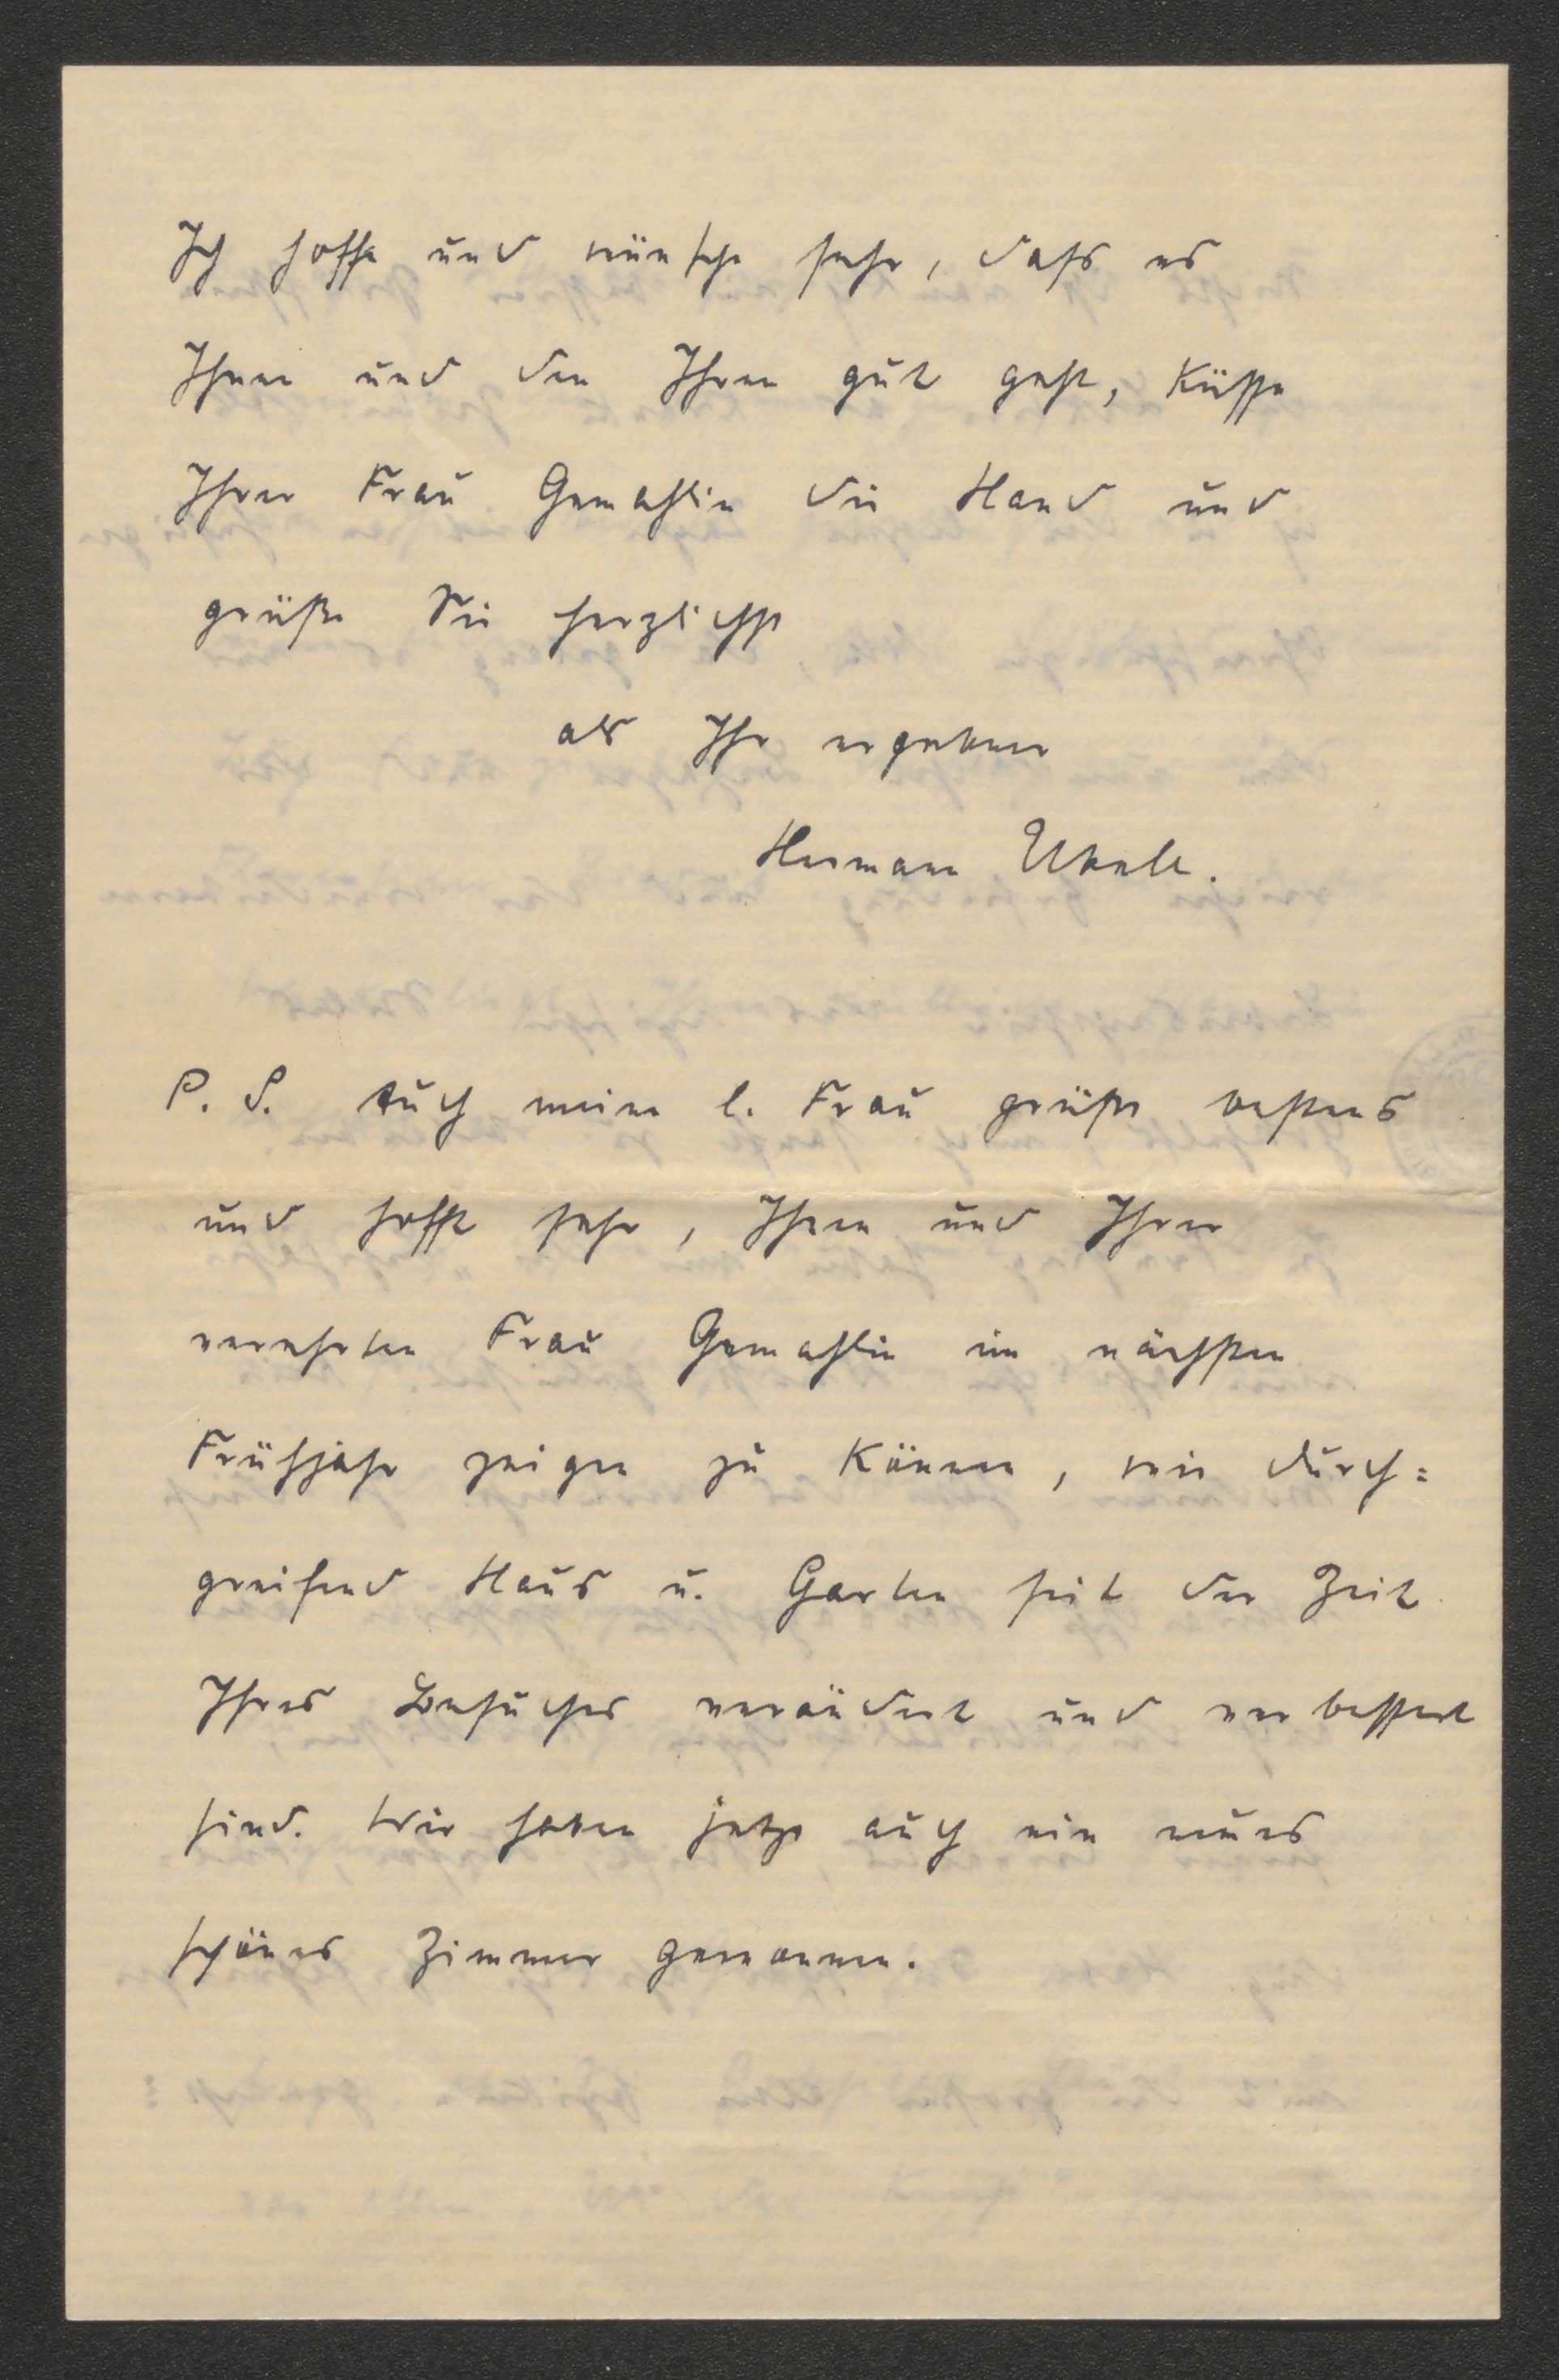 Ich hoffe und wünsche sehr, dass es
Ihnen und den Ihren gut geht, küsse
Ihrer Frau Gemahlin die Hand und
grüße Sie herzlichst
als Ihr ergebener
Hermann Ubell.
P. S. Auch meine l. Frau grüßt bestens
und hofft sehr, Ihnen und Ihrer
verehrten Frau Gemahlin im nächsten
Frühjahr zeigen zu können, wie durch=
greifend Haus u. Garten seit der Zeit
Ihres Besuches verändert und verbessert
sind. Wir haben jetzt auch ein neues
schönes Zimmer gewonnen.